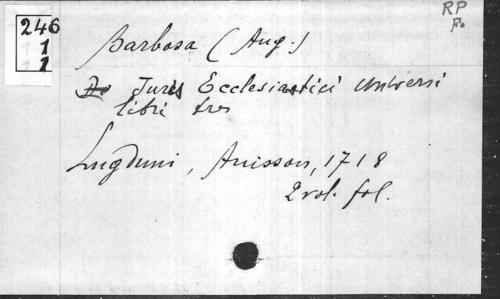 246
1
1
RP
Barbosa (Aug.)
De Juris Ecclesiastici Universi
libri tres
Lugduni, Anisson, 1718
2 vol. fol.